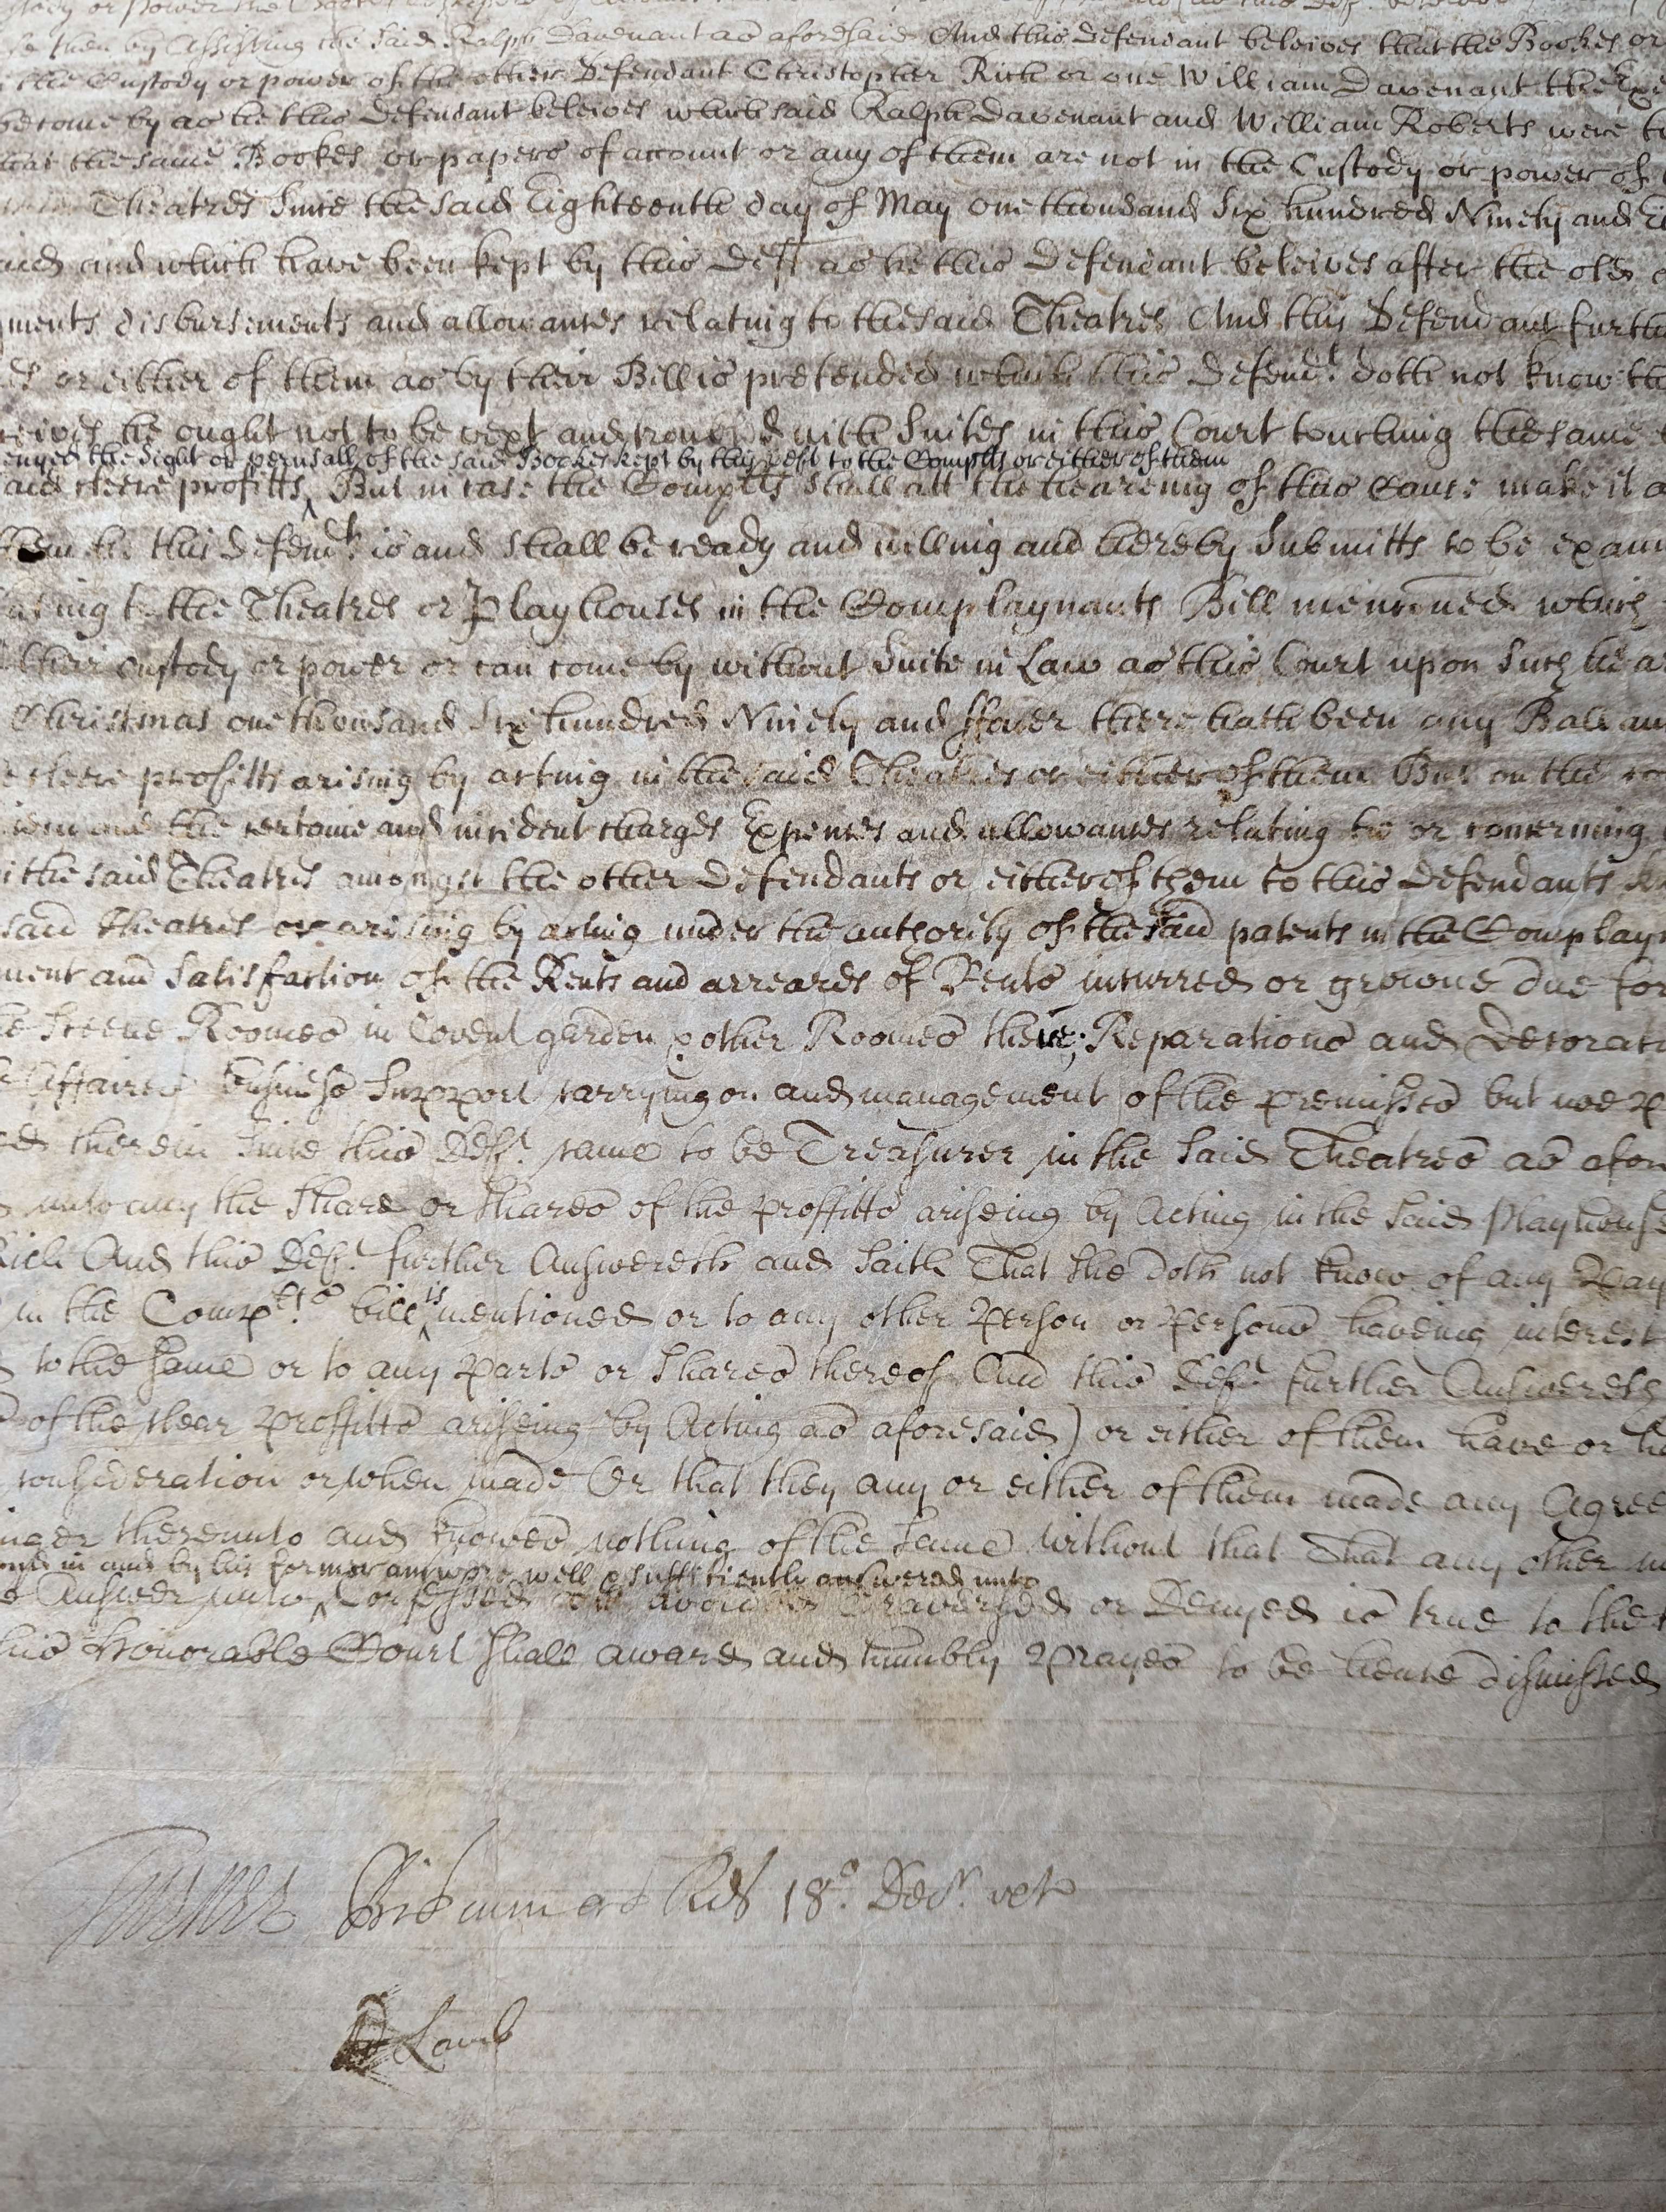 then by Assisting the said Ralph Davenant as aforesaid And this defendant beleives that the Bookes or
the Custody or power of the other Defendant Christopher Rich or one William Davenant the
become by as he this Defendant beleives which said Ralph Davenant and William Roberts were
that the same Bookes or papers of account or any of them are not in the Custody or power of
Theatres Since the said Eighteenth day of May one thousand Six hundred Ninety and
and which have been kept by this Deft as he this Defendant beleives after the old
ments disbursements and allowances relating to the said Theatres And this Defendant furth
or either of them as by their Bill is pretended which this Defendt. doth not know
he ought not to be vext and troubled with Suites in this Court touching the same
the Sight or perusall of the said Bookes kept by this Deft to the Complts or either of them
cleere profitts ‸ But in case the Complts Shall att the heareing of this Cause make it
he this Defendt. is and Shall be ready and willing and hereby Submitts to be exam
ating to the Theatres or Playhouses in the Complaynants Bill menconed which
their custody or power or can come by without Suite in Law as this Court upon Such
Christmas one thousand Six hundred Ninety and ffower there hath been any Ballan
cleere profitts arising by acting in the said Theatres or either of them But on the
the certaine and incident charges Expences and allowances relating to or concerning
the said Theatres amongst the other Defendants or either of them to this Defendants
said Theatres or arising by acting under the authority of the said patents in the Complay
ment and Satisfaction of the Rents and arreares of Rents incurred or growne due for
Sceene Roomes in Covent garden & other Roomes there; Reparations and Decorati
Affaires business Support carrying on and management of the premisses but noe
therein Since this Deft. came to be Treasurer in the Said Theatres as afor
unto any the Share or Shares of the proffitts ariseing by Acting in the Said Playhouse
Rich And this Deft. further Answereth and Saith That She doth not know of any Pay
in the Complts. bill is ‸ mentioned or to any other Person or Persons haveing interest
to the Same or to any Parts or Shares thereof And this Deft. further Answereth
of the cleer Proffitts ariseing by Acting as aforesaid) or either of them have or
consideration or when made Or that they any or either of them made any Agree
thereunto and knowes nothing of the Same without that That any other
in and by his former answere well & sufficiently answered unto
Answer unto ‸ Confessed avoided Traversed or Denyed is true to the
this Honorable Court Shall award and humbly Prayes to be hence dismissed
18o. Decr.
Lamb